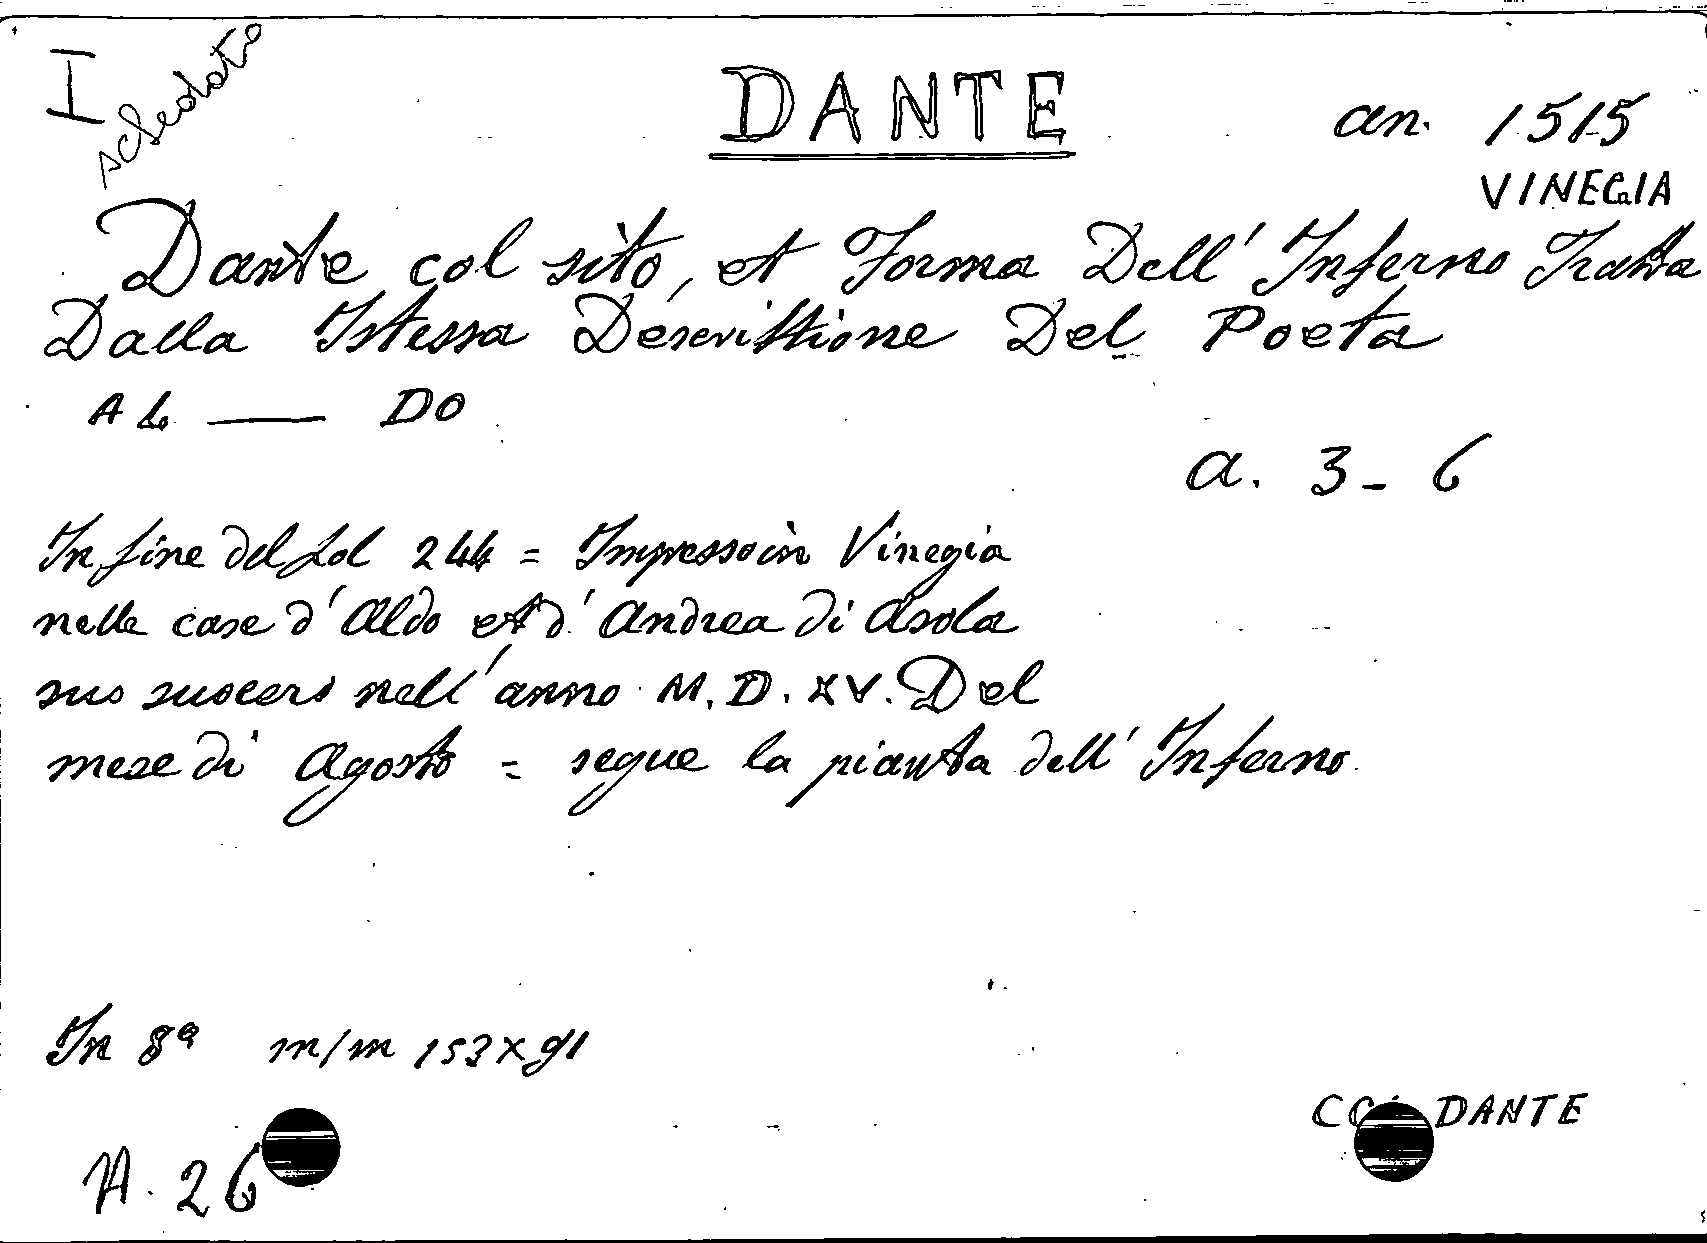 I schedato
DANTE
an. 1515
VINEGIA
Dante col sito, et Forma Dell' Inferno Tratta
Dalla Istessa Descrittione Del Poeta
AL — DO
a. 3 - 6
In fine del fol 244 = Impresso in Vinegia
nelle case d' Aldo et d' Andrea di Asola
suo suocero nell' anno M. D. XV. Del
mese di Agosto = segue la pianta dell' Inferno.
In 8ª m/m 153 x 91
DANTE
A. 26